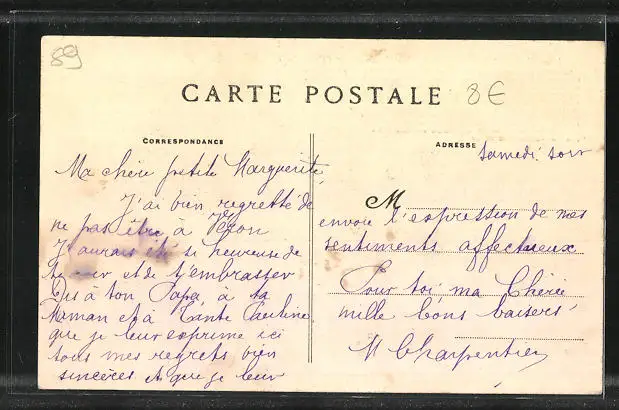 89
CARTE POSTALE 8€
CORRESPONDANCE
ADRESSE
Samedi soir
Ma chère petite Marguerite,
J'ai bien regretté de
ne pas être à
J'aurais été si heureuse de
te voir et de t'embrasser
Dis à ton Papa, à ta
Maman et à Tante Pauline,
que je leur exprime ici
tous mes regrets bien
sincères & que je leur
M
envoie l'expression de mes
sentiments affectueux
Pour toi, ma Chérie
mille bons baisers
M Charpentier